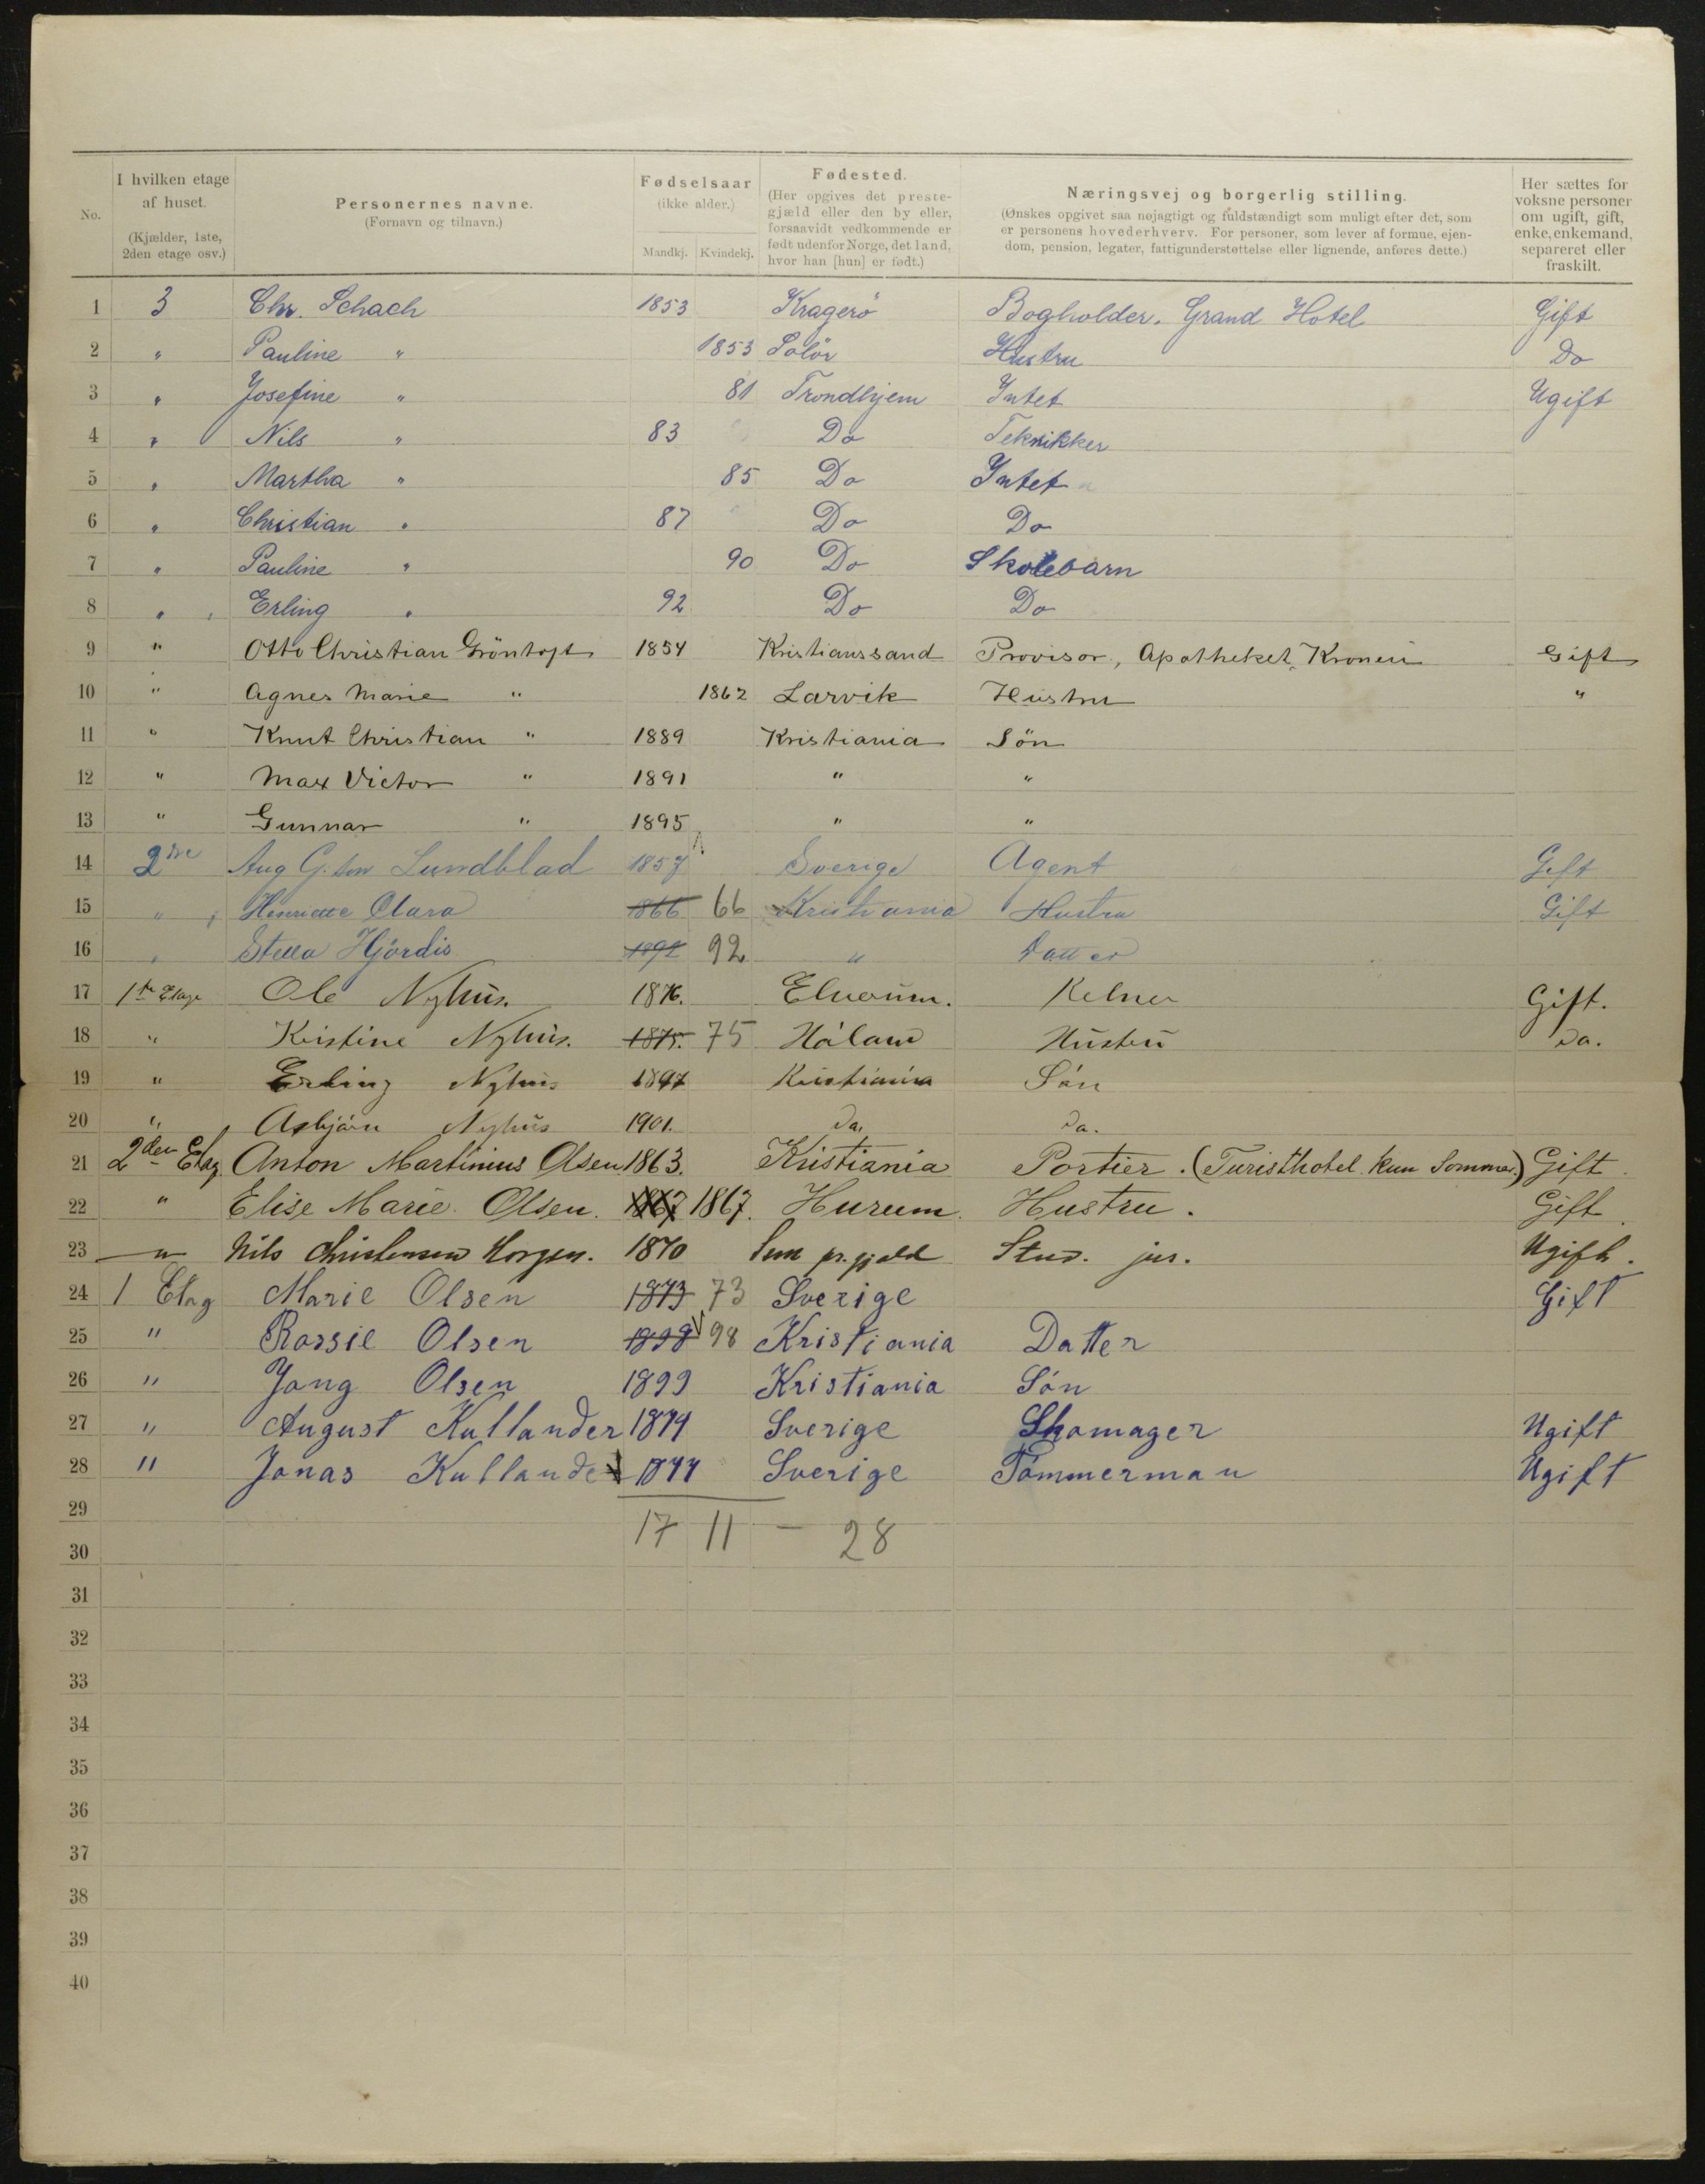 No.
I hvilken etage af huset. (Kjælder, 1ste, 2den etage osv.)
Personernes navne. (Fornavn og tilnavn.)
Fødselsaar (ikke alder.) Mandkj. Kvindekj.
Fødested. (Her opgives det prestegjæld eller den by eller, forsaavidt vedkommende er født udenfor Norge, det land, hvor han [hun] er født.)
Næringsvej og borgerlig stilling. (Ønskes opgivet saa nøjagtigt og fuldstændigt som muligt efter det, som er personens hovederhverv. For personer, som lever af formue, ejendom, pension, legater, fattigunderstøttelse eller lignende, anføres dette.)
Her sættes for voksne personer om ugift, gift, enke, enkemand, separeret eller fraskilt.
1 3 Chr. Schach 1853 Kragerö Bogholder. Grand Hotel Gift
2 " Pauline " 1853 Solör Hustru Do
3 " Josefine " 81 Trondhjem Intet Ugift
4 " Nils " 83 Do Teknikker
5 " Martha " 85 Do Intet
6 " Christian " 87 Do Do
7 " Pauline " 90 Do Skolebarn
8 " Erling " 92 Do Do
9 " Otto Christian Gröntoft 1854 Kristianssand Provisor, Apotheket Kronen Gift
10 " Agnes Marie " 1862 Larvik Hustru "
11 " Knut Christian " 1889 Kristiania Sön
12 " Max Victor " 1891 " "
13 " Gunnar " 1895 " "
14 2den Aug G. son Lundblad 1857 Sverige Agent Gift
15 " Henriette Clara 1866 66 Kristiania Hustru Gift
16 " Stella Hjördis 1892 92 " Datter
17 1ste Etage Ole Nyhus. 1876. Elverum. Kelner Gift.
18 " Kristine Nyhus. 1875. 75 Håland Hustru Do.
19 " Erling Nyhus 1897 Kristiania Sön
20 " Asbjörn Nyhus 1901. Do. Do.
21 2den Etag. Anton Martinius Olsen 1863. Kristiania Portier. (Turisthotel kun Sommer.) Gift.
22 " Elise Marie Olsen. 1867 1867. Hurum. Hustru. Gift.
23 " Nils Christensen Horgen. 1870 Sem pr.gjeld Stud. jur. Ugift.
24 1 Etag Marie Olsen 1873 73 Sverige Gift
25 " Rossie Olsen 1898 98 Kristiania Datter
26 " Jong Olsen 1899 Kristiania Sön
27 " August Kullander 1879 Sverige Skomager Ugift
28 " Jonas Kullander 1877 Sverige Tömmerman Ugift
29
17 11 - 28
30
31
32
33
34
35
36
37
38
39
40